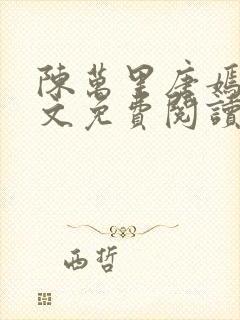 陳萬里唐嫣
文免費閱讀
西哲